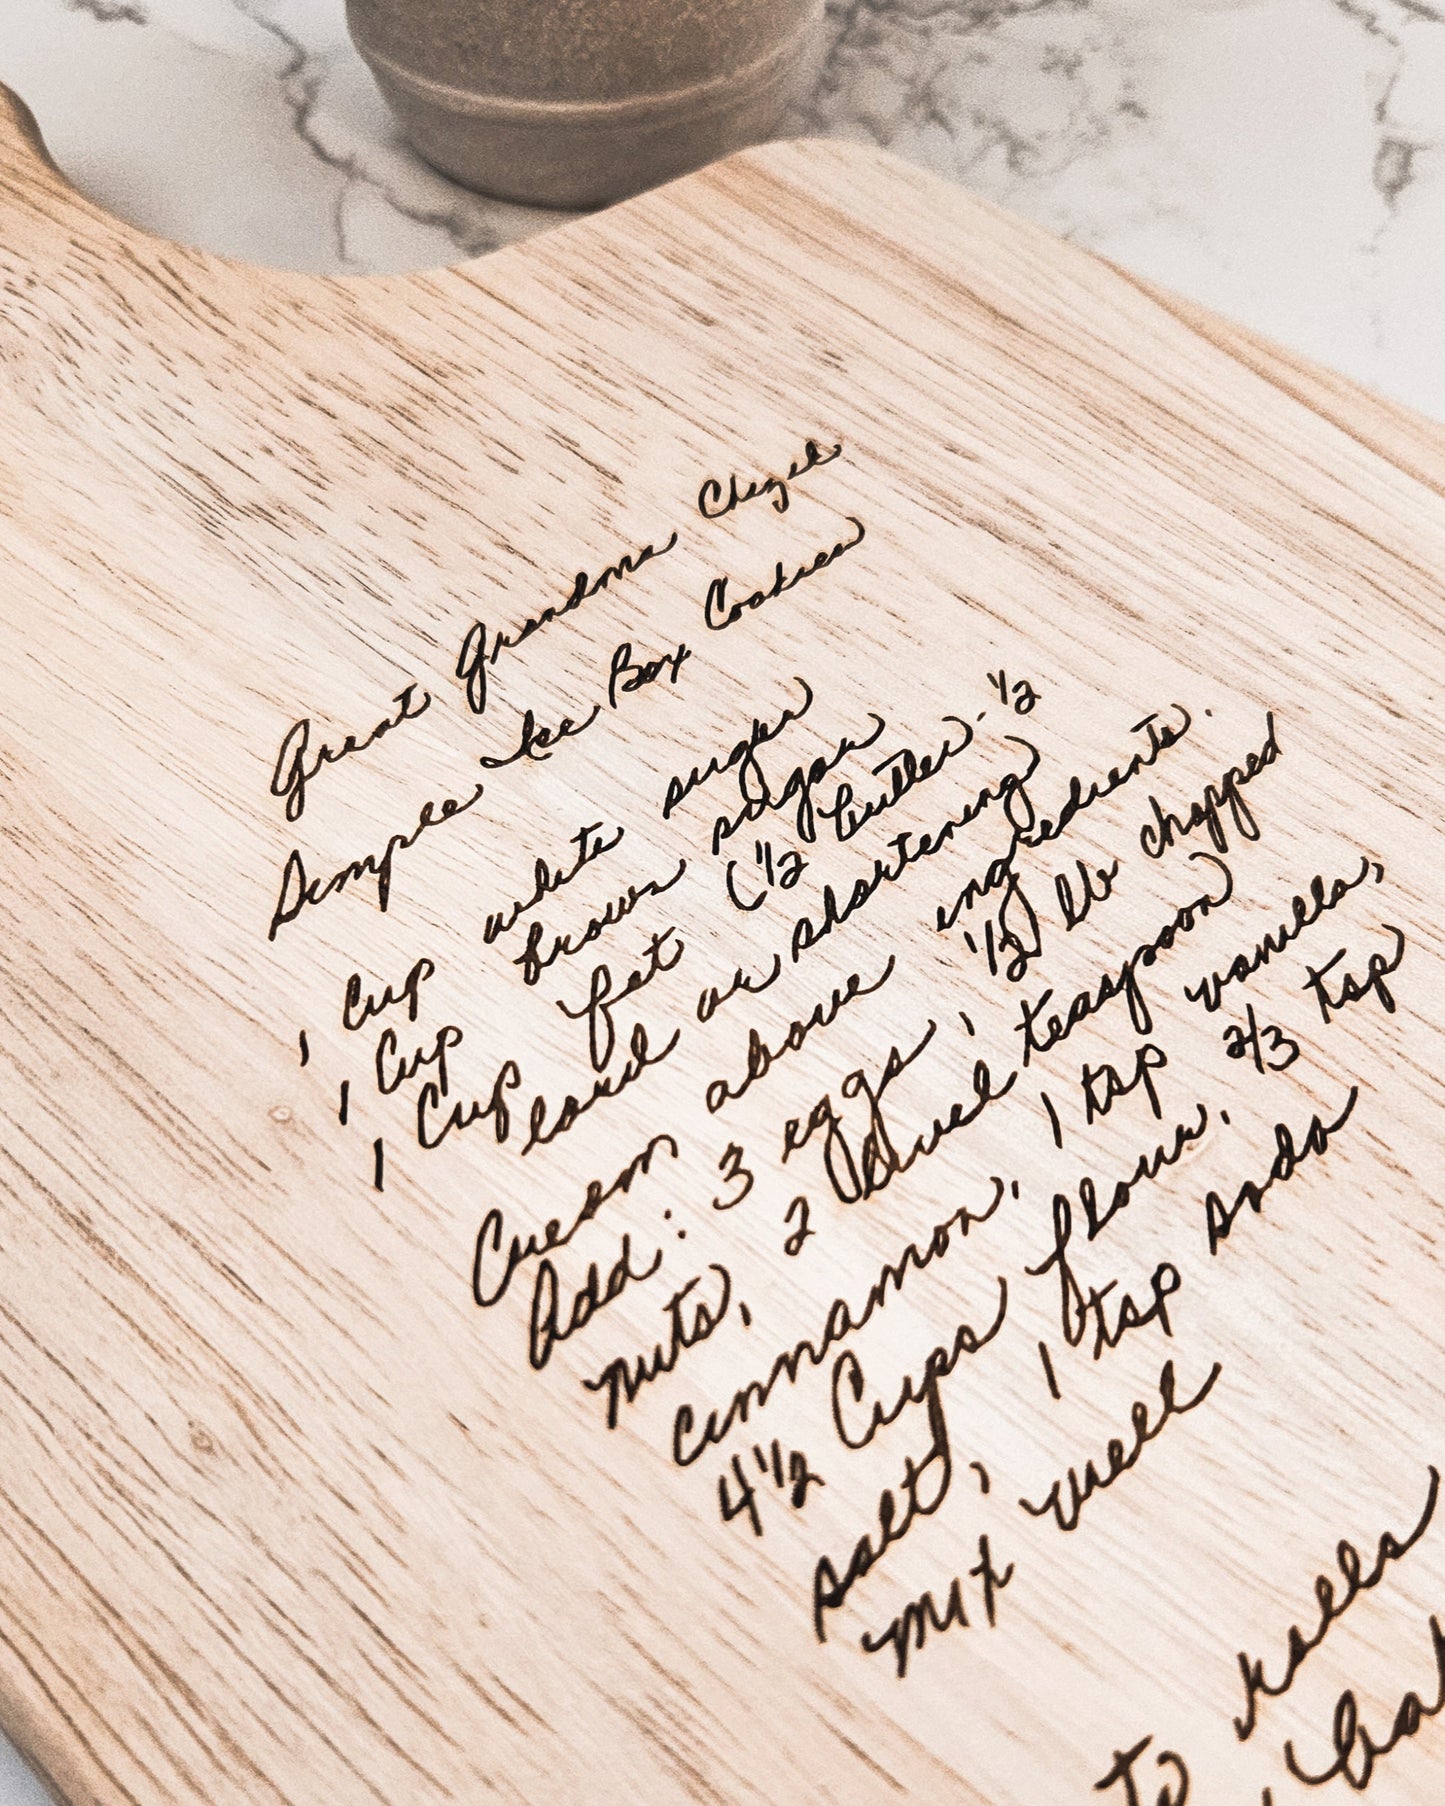 Great Grandma Chezel
Simple Ice Box Cookies
1 Cup white sugar
1 Cup brown sugar
1 Cup fat (1/2 butter - 1/2
lard or shortening)
Cream above ingredients.
Add: 3 eggs, 1/2 lb chopped
nuts, 2 level teaspoon
cinnamon, 1 tsp vanilla,
4 1/2 Cups flour, 2/3 tsp
salt, 1 tsp soda
Mix well
to rolls